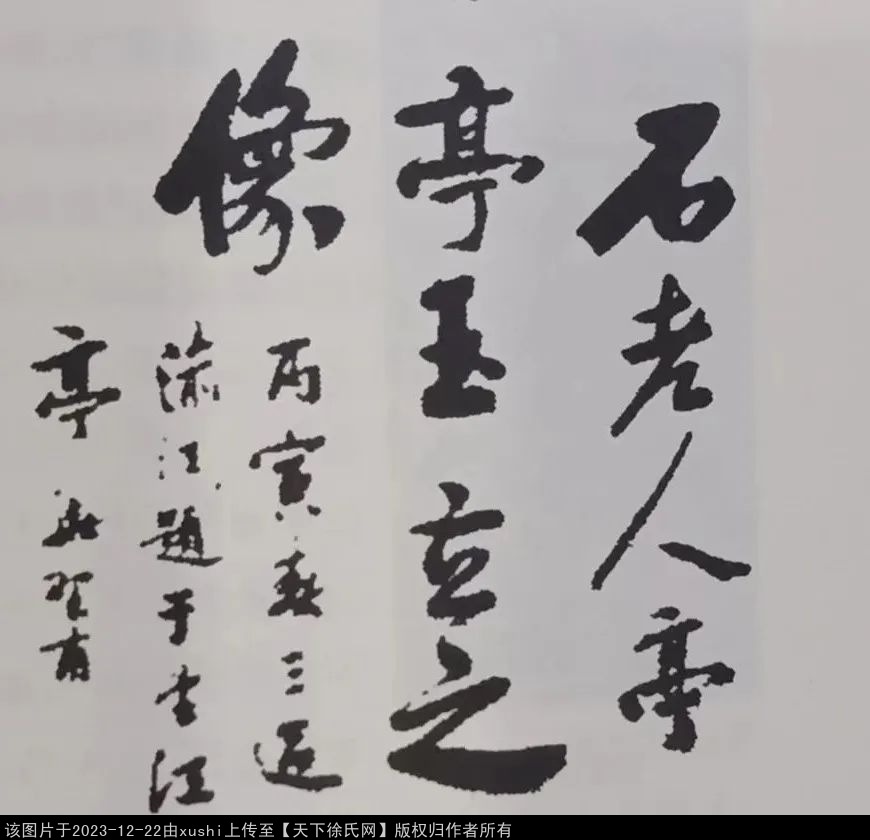 石老人亭
亭玉立之
像
丙寅春三
江題于江
亭
该图片于2023-12-22由xushi上传至【天下徐氏网】版权归作者所有